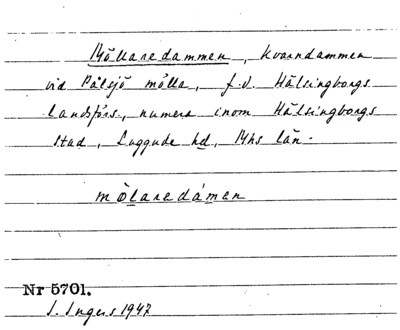 Möllaredammen, kvarndammen
vid Pålsjö mölla, f.d. Hälsingborgs
landsförs., numera inom Hälsingborgs
stad, Luggude hd, Mhs län.
mölaredámen
Nr 5701.
I. Ingers 1947